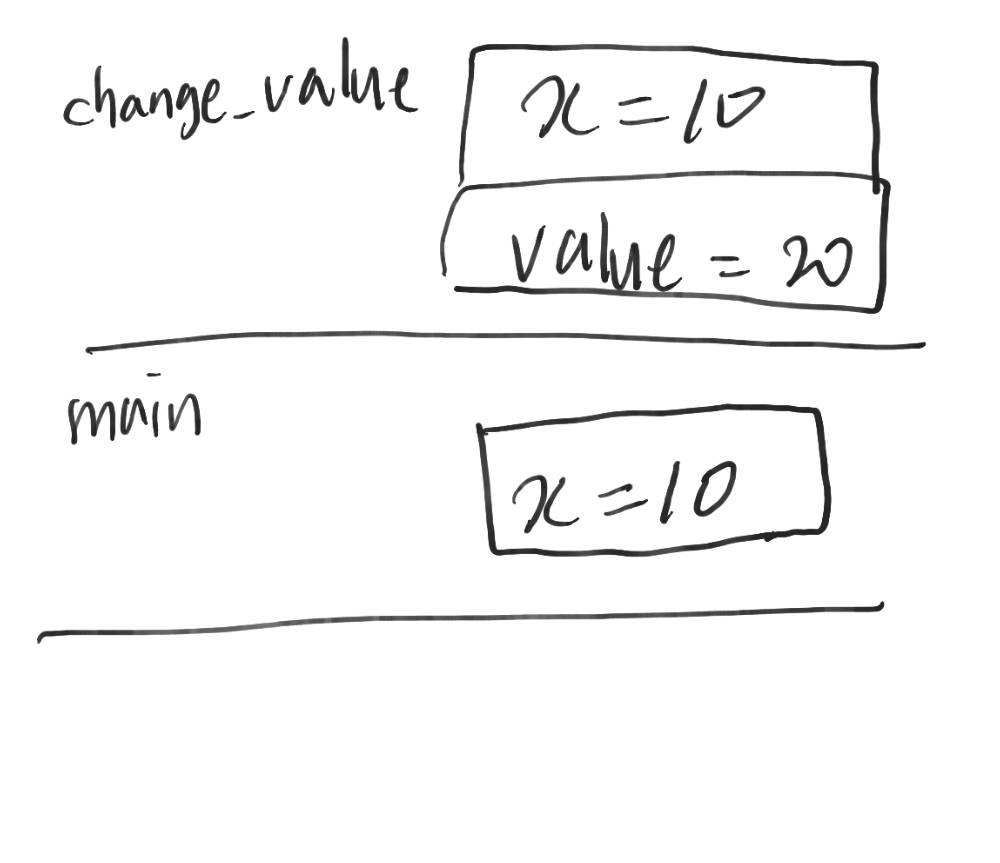 change_value x = 10
value = 20
main
x = 10